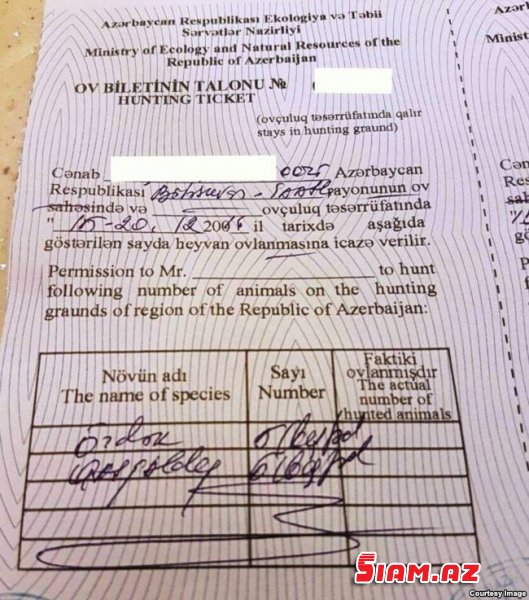 Azərbaycan Respublikası Ekologiya və Təbii
Sərvətlər Nazirliyi
Ministry of Ecology and Natural Resources of the
Republic of Azerbaijan
OV BİLETİNİN TALONU №
HUNTING TICKET
(ovçuluq təsərrüfatında qalır
stays in hunting graund)
Cənab Azərbaycan
Respublikası rayonunun ov
sahəsində və ovçuluq təsərrüfatında
" 15-20. 12 2016 il tarixdə aşağıda
göstərilən sayda heyvan ovlanmasına icazə verilir.
Permission to Mr. to hunt
following number of animals on the hunting
graunds of region of the Republic of Azerbaijan:
Növün adı
The name of species
Sayı
Number
Faktiki
ovlanmışdır
The actual
number of
hunted animals
Ördək 5/beş/əd
Qaşqaldaq 5/beş/əd
Azər
Res
sah
Minist
Cən
Res
sah
gös
Per
foll
gra
SİAM.AZ
Courtesy Image